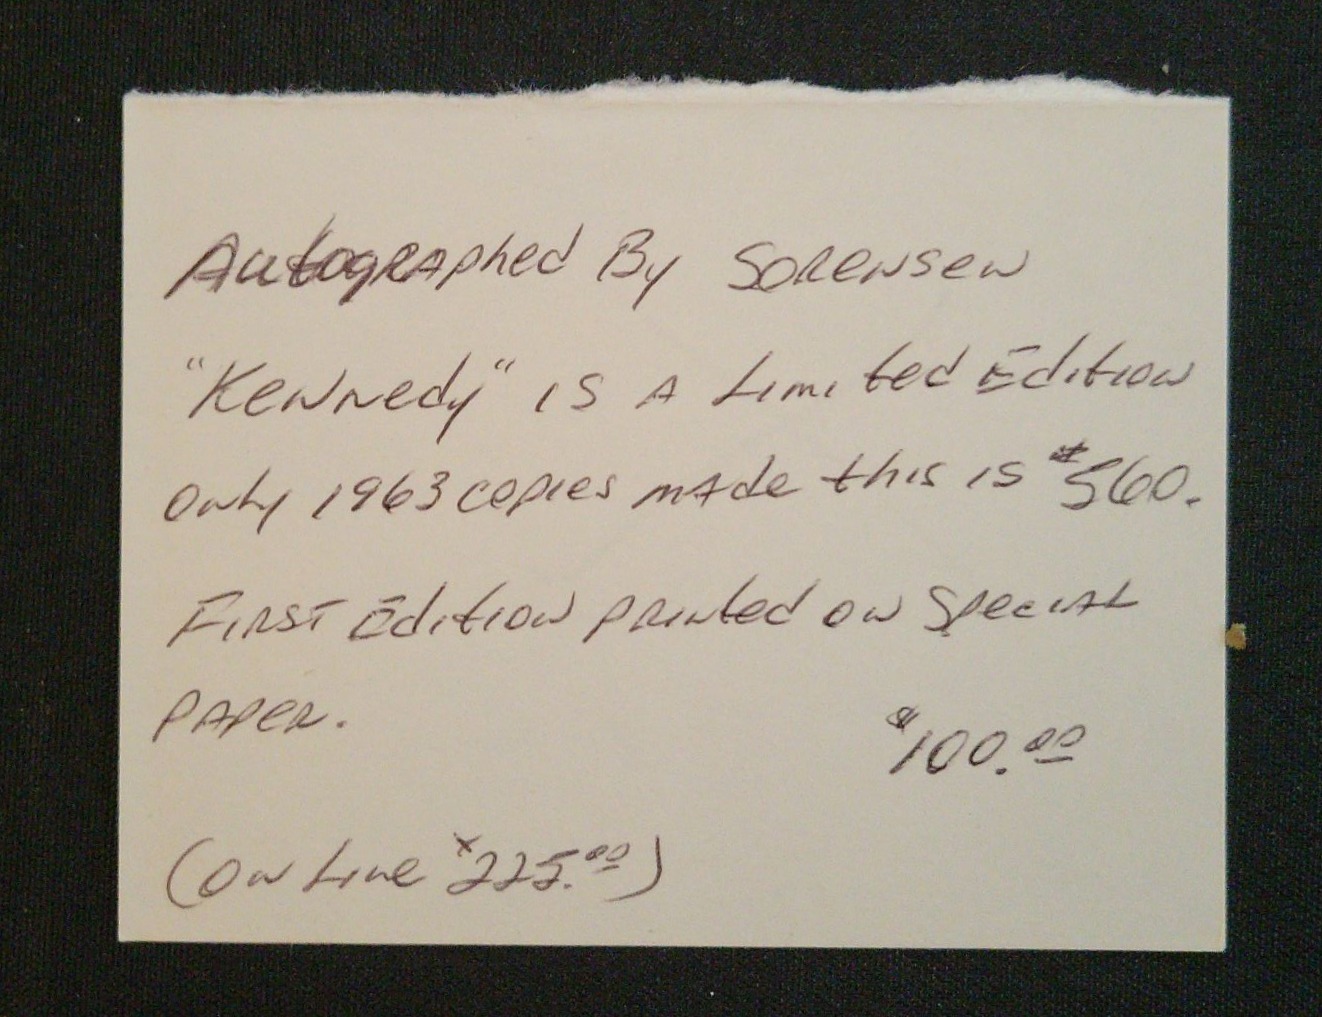 Autographed By Sorensen
"Kennedy" is a Limited Edition
only 1963 copies made this is #560.
First Edition printed on Special
Paper.
$100.00
(On Line $225.00)